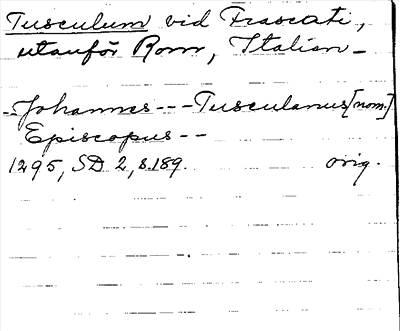 Tusculum vid Frascati,
utanför Rom, Italien –
-- Johannes --- Tusculanus [nom.]
Episcopus --
1295, SD 2, s. 189. orig.